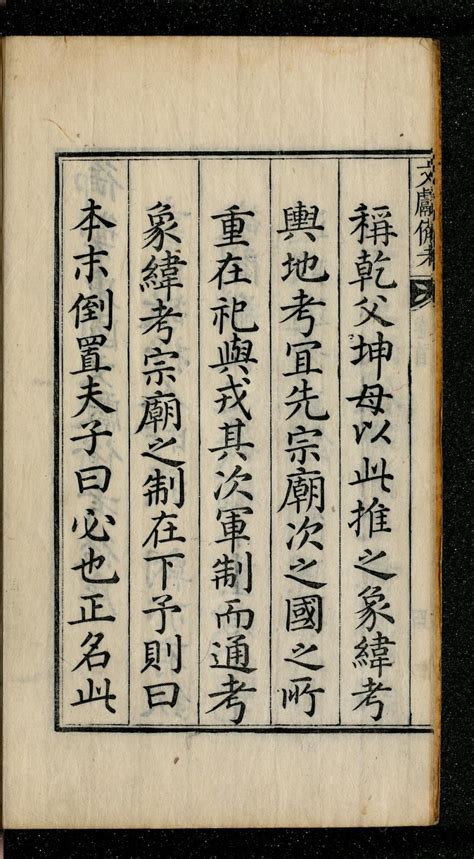 文獻備考
稱乾父坤母以此推之象緯考
輿地考冝先宗廟次之國之所
重在祀與戎其次軍制而通考
象緯考宗廟之制在下予則曰
本末倒置夫子曰必也正名此